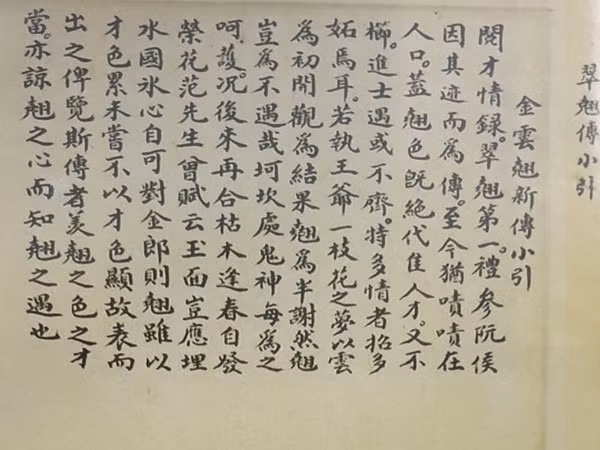 翠翹傳小引
金雲翹新傳小引
閱才情錄。翠翹第一。禮參阮侯
因其迹而爲傳。至今猶嘖嘖在
人口。蓋翹色既絶代佳人才。又不
櫛。進士遇或不齊。特多情者招多
妬焉耳。若執王爺一枝花之夢以雲
爲初開觀爲結果翹爲半謝然翹
豈爲不遇哉坷坎處鬼神每爲之
呵護。况後來再合枯木逢春自發
榮花范先生曾賦云玉面豈應埋
水國氷心自可對金郎則翹雖以
才色累未嘗不以才色顯故表而
出之俾覽斯傳者羙翹之色之才
當。亦諒翹之心而知翹之遇也